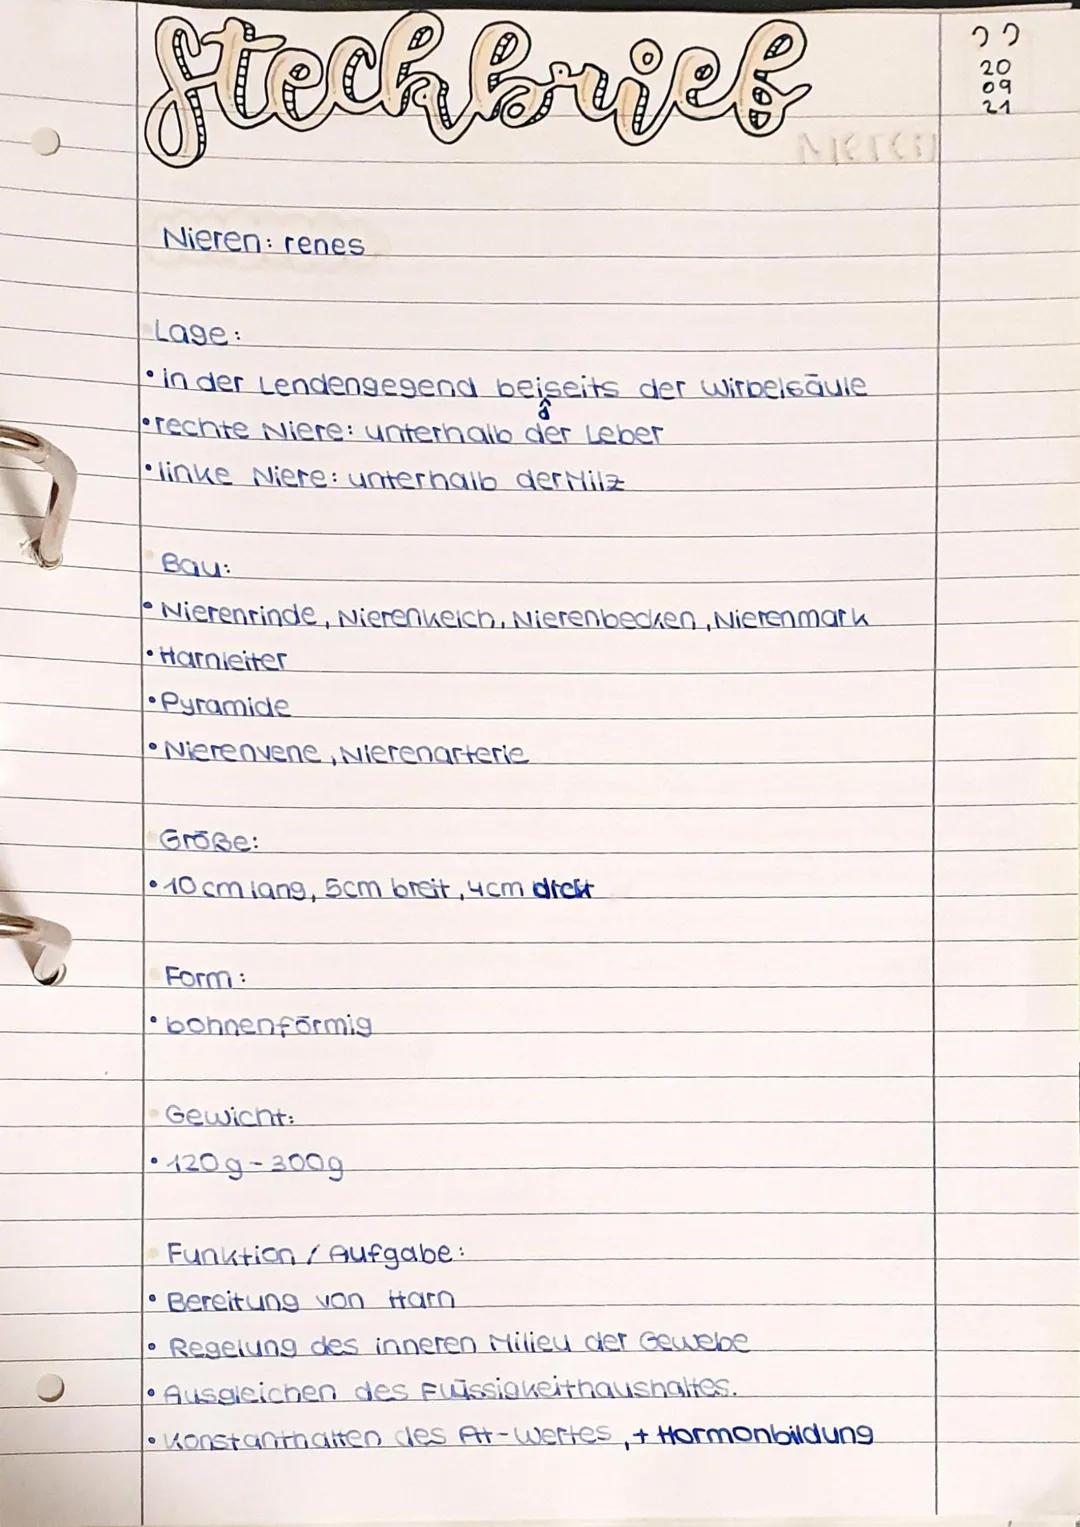 Steckbrief
20
09
21
Nieren
Nieren: renes
Lage:
• in der Lendengegend beiseits der Wirbelsäule
d
• rechte Niere: unterhalb der Leber
• linke Niere: unterhalb der Milz
Bau:
• Nierenrinde, Nierenkelch, Nierenbecken, Nierenmark
• Harnleiter
• Pyramide
• Nierenvene, Nierenarterie
Größe:
• 10 cm lang, 5cm breit, 4cm dick
Form:
• bohnenförmig
Gewicht:
• 120g - 300g
Funktion / Aufgabe:
• Bereitung von Harn
• Regelung des inneren Milieu der Gewebe
• Ausgleichen des Flüssigkeithaushaltes.
• Konstanthalten des PH-Wertes, + Hormonbildung